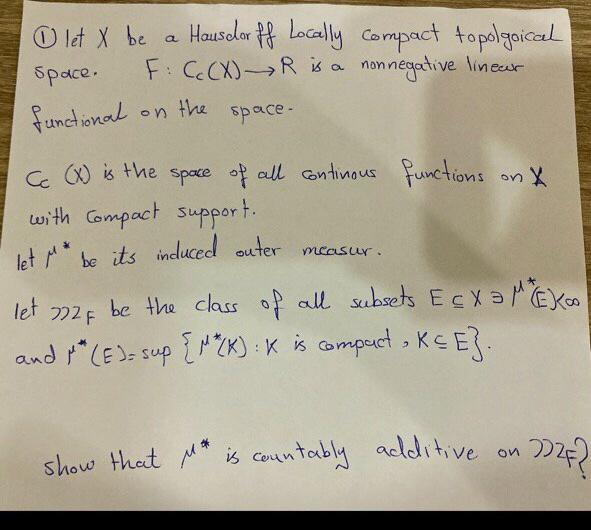 ① let X be a Hausdorff Locally Compact topolgoical
space. F : Cc(X) → R is a nonnegative linear
functional on the space.
Cc (X) is the space of all continous functions on X
with compact support.
let μ* be its induced outer measur.
let 𝔐F be the class of all subsets E ⊆ X ∋ μ*(E)<∞
and μ*(E)= sup {μ*(K) : K is compact , K ⊆ E}.
show that μ* is countably additive on 𝔐F?